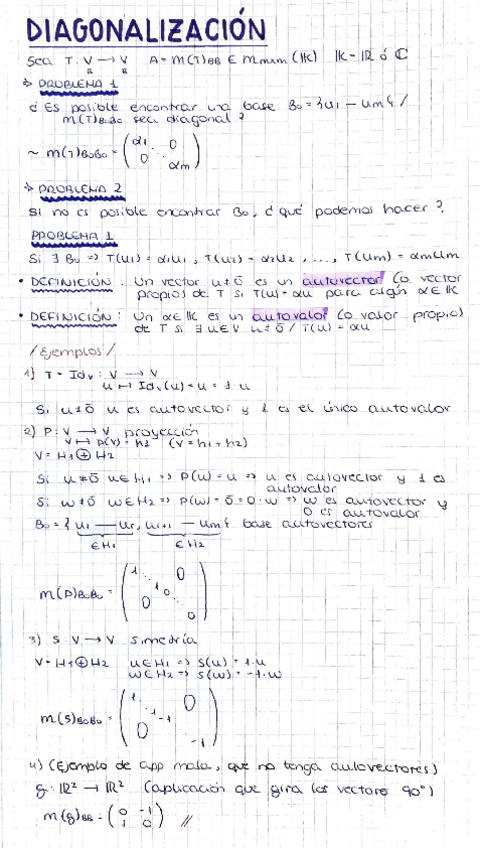 DIAGONALIZACIÓN
Sea T: V → V A = M(T)BB ∈ Mmxm (K) K = R ó C
→ PROBLEMA 1
¿ Es posible encontrar una base B0 = {u1 — um} /
M(T)B0B0 sea diagonal ?
~ M(T)B0B0 = (α1 ⋱ 0
0 αm)
→ PROBLEMA 2
Si no es posible encontrar B0, ¿ qué podemos hacer ?
PROBLEMA 1
Si ∃ B0 => T(u1) = α1u1 , T(u2) = α2u2 , ..., T(um) = αmum
• DEFINICIÓN : Un vector u ≠ 0 es un autovector (o vector
propio) de T si T(u) = αu para algún α ∈ K
• DEFINICIÓN : Un α ∈ K es un autovalor (o valor propio)
de T si ∃ u ∈ V u ≠ 0 / T(u) = αu
/Ejemplos/
1) T = Idv : V → V
u ↦ Idv(u) = u = 1·u
Si u ≠ 0 u es autovector y 1 es el único autovalor
2) P: V → V proyección
V ↦ P(V) = h1 (V = h1 + h2)
V = H1 ⊕ H2
Si u ≠ 0 u ∈ H1 => P(u) = u => u es autovector y 1 es
autovalor
Si w ≠ 0 w ∈ H2 => P(w) = 0 = 0·w => w es autovector y
0 es autovalor
B0 = { u1 — ur, ur+1 — um } base autovectores
∈ H1 ∈ H2
M(P)B0B0 = (1 ⋱ 0
1 0
0 ⋱ 0)
3) S: V → V simetría
V = H1 ⊕ H2 u ∈ H1 => S(u) = 1·u
w ∈ H2 => S(w) = -1·w
M(S)B0B0 = (1 ⋱ 0
1 -1
0 ⋱ -1)
4) (Ejemplo de app mala, que no tenga autovectores)
g: R² → R² (aplicación que gira los vectores 90°)
M(g)BB = (0 -1
1 0) //